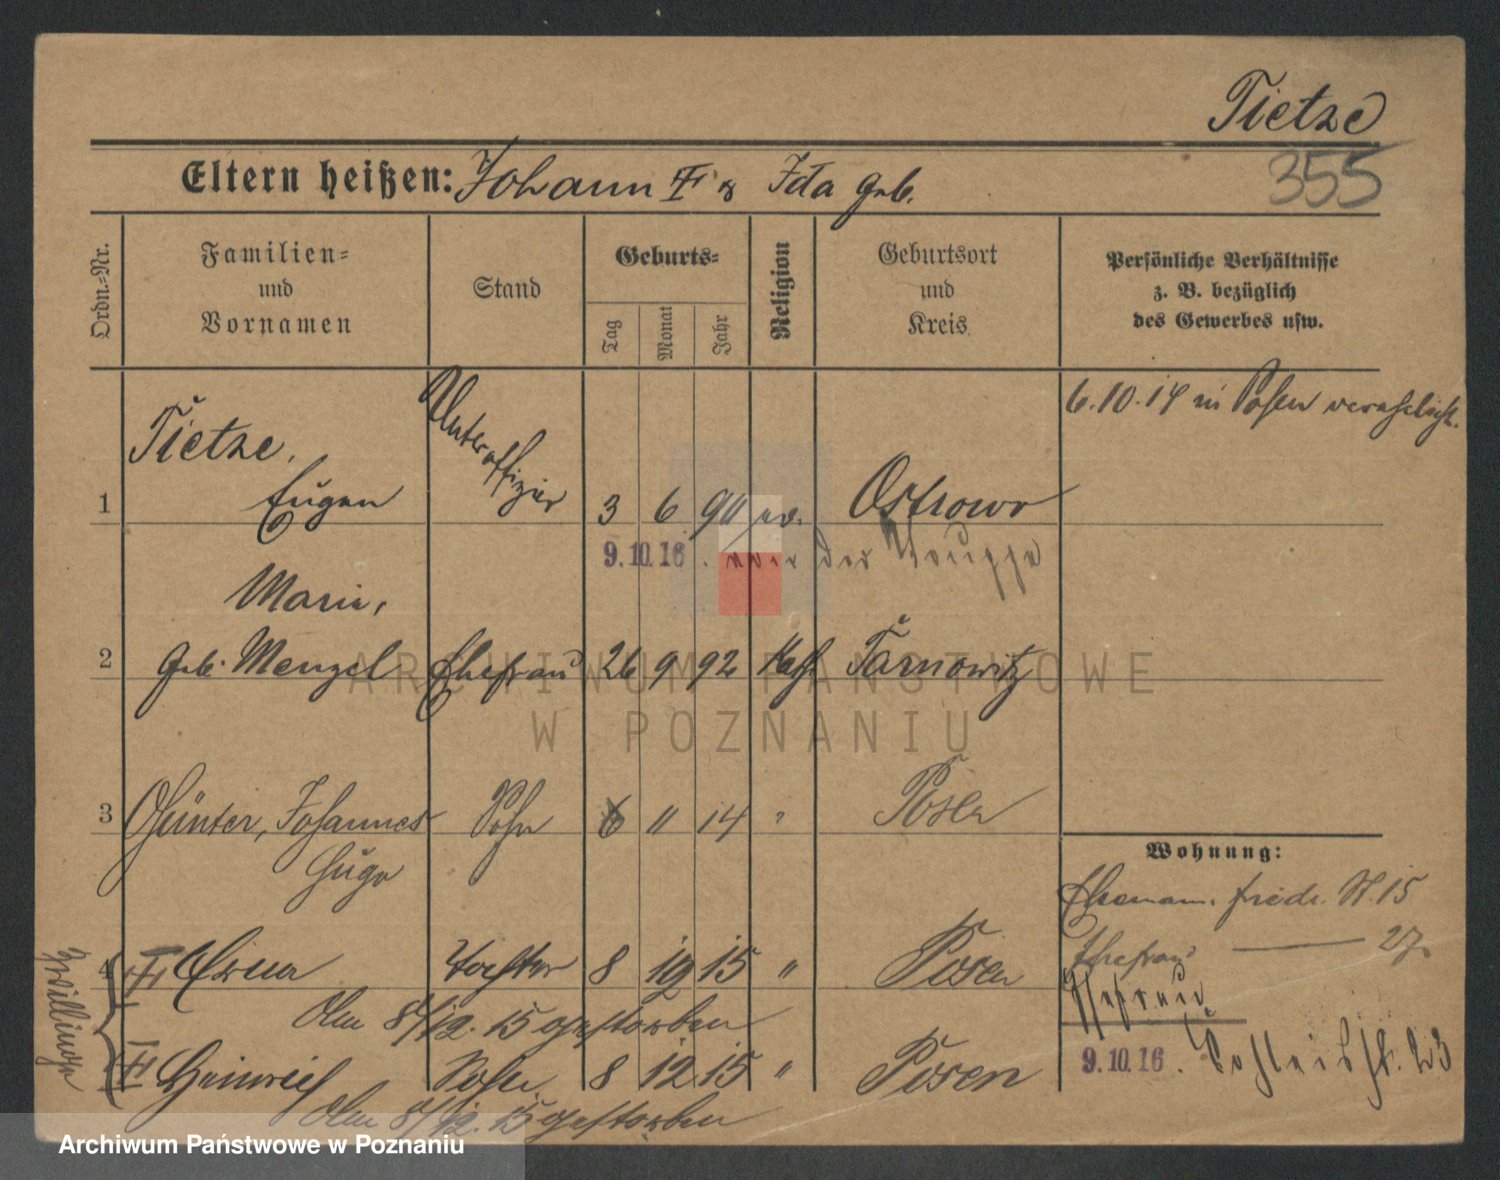 Tietze
355
Eltern heißen: Johann T. & Ida geb.
Ordn.-Nr.
Familien-
und
Vornamen
Stand
Geburts-
Tag
Monat
Jahr
Religion
Geburtsort
und
Kreis
Persönliche Verhältnisse
z. B. bezüglich
des Gewerbes usw.
6.10.14 in Posen verehelicht.
Tietze,
1 Eugen Unteroffizier 3 6 90 ev. Ostrowo
9.10.16. von der Truppe
Marie,
2 geb. Menzel Ehefrau 26 9 92 kath Tarnowitz
3 Günter, Johannes Sohn 6 " 14 " Posen
Hugo
Wohnung:
Ehemann. Friedr. St. 15
Ehefrau — 27.
Ehefrau
9.10.16. 23
Zwillinge
4 Erena Tochter 8 12 15 " Posen
Am 8/12. 15 gestorben
Heinrich Sohn 8 12 15 " Posen
Am 8/12. 15 gestorben
ARCHIWUM PAŃSTWOWE
W POZNANIU
Archiwum Państwowe w Poznaniu